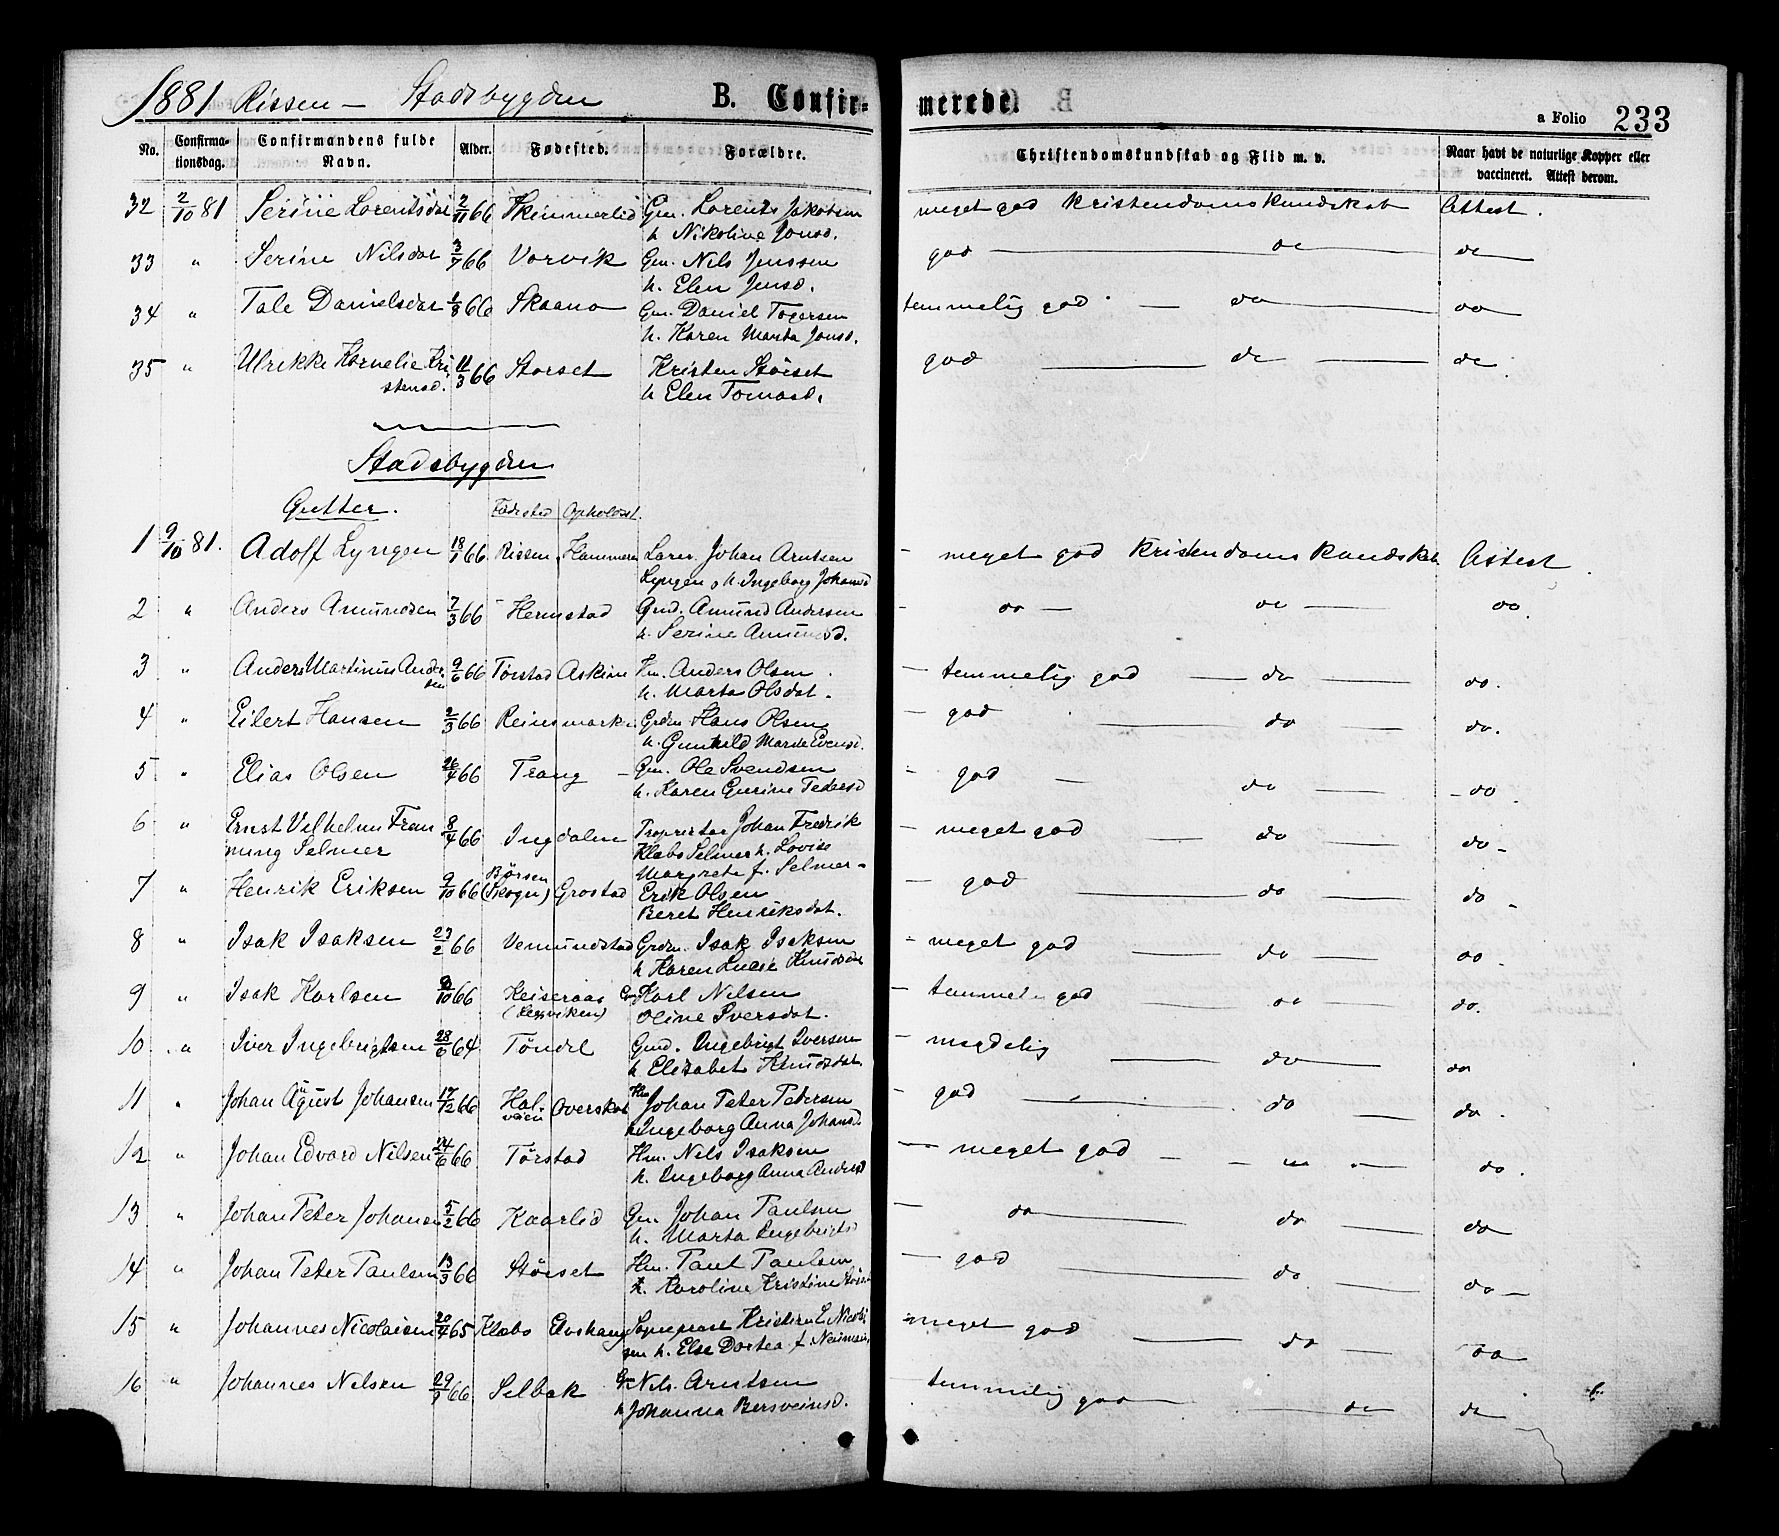 1881 Rissen - Stadsbygden B. Confir- merede. a Folio 233
No. Confirma-tionsdag. Confirmandens fulde Navn. Alder. Fødested. Forældre. Christendomskundskab og Flid m. v. Naar havt de naturlige Kopper eller vaccineret. Attest derom.
32 2/10 81 Serine Lorentsdat 2/11 66 Skimmerlid Gm. Lorents Jakobsen meget god Kristendomskundskab Attest.
h Nikoline Jonsd.
33 " Serine Nilsdat 3/7 66 Vorvik Gm. Nils Jenssen god do do
h. Elen Jensd.
34 " Tale Danielsdat 1/8 66 Skaano Gm. Daniel Togersen temmelig god - do do
h. Karen Marta Jonsd.
35 " Ulrikke Kornelie Kri 11/3 66 Storset Kristen Störset god do do
stensd. h Elen Tomasd.
Stadsbygden
Gutter. Födested Opholdst.
1 9/10 81. Adolf Lyngen 18/1 66 Rissen Hammeren Lærer Johan Arntsen - meget god Kristendomskundskab Attest.
Lyngen o h Ingeborg Johansd
2 " Anders Amundsen 7/3 66 Hermstad Gmd. Amund Andersen - do - do do.
h. Serine Amundsd.
3 " Anders Martinus Ander- 9/6 66 Törstad Askim Hm. Anders Olsen - temmelig god do do.
sen h. Marta Olsdat.
4 " Eilert Hansen 2/3 66 Reinsmark Grdm Hans Olsen - god do do.
h. Gunhild Marie Evensd.
5 " Elias Olsen 26/4 66 Trang - Gm. Ole Svendsen - god - do - do.
h. Karen Gurine Pedersd
6 " Ernst Vilhelm Fram 8/4 66 Ingdalen Proprietær Johan Fredrik - meget god do do-
ming Selmer Klæbo Selmer h. Lovise
Margrete f. Selmer-
7 " Henrik Eriksen 9/10 66 Börsen (Skogn) Grostad Erik Olsen - god do do -
Beret Henriksdat.
8 " Isak Isaksen 23/2 66 Vemundstad Grdm. Isak Isaksen - meget god do do -
h Karen Lucie Knudsdat
9 " Isak Karlsen 9/10 66 Keiseraas Karl Nilsen - temmel. god do do.
(Leksviken) Oline Iversdat.
10 " Iver Ingebrigtsen 28/6 64 Töndel Gmd. Ingebrigt Iversen - maadelig do do
h. Elisabet Knudsdat
11 " Johan August Johansen 17/12 66 Hal- Overskot Hm Johan Peter Petersen - god do do.
h Ingeborg Anna Johansd.
12 " Johan Edvard Nilsen 24/6 66 Törstad Hm. Nils Isaksen - meget god do.
h. Ingeborg Anna Andersd
13 " Johan Peter Johansen 5/2 66 Kaarlid Gm. Johan Paulsen - do do do
h. Marta Ingebrigtsd
14 " Johan Peter Paulsen 13/3 66 Störset Hm. Paul Paulsen - god do do -
h. Karoline Kristine
15 " Johannes Nicolaisen 20/4 65 Klæbo Sogneprest Kristian E. Nicolai - meget god do do
sen h. Else Dortea f. Neumann
16 " Johannes Nilsen 29/9 66 Selbek Gm Nils Arntsen - temmelig god do do
h Johanna Bersveinsd.